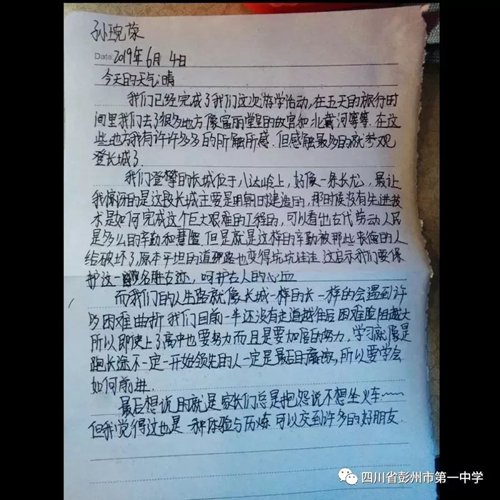 孙琬荣
Date 2019年6月4日
今天的天气晴
我们已经完成了我们这次游学活动,在五天的旅行时
间里我们去了很多地方像富丽堂皇的故宫和北戴河等等.在这
些地方我有许许多多的所触所感.但感触最多的就参观
登长城了.
我们登攀的长城位于八达岭上,好像一条长龙,最让
我惊讶的是这段长城主要是用明时建造的,那时候没有先进技
术是如何完成这个巨大艰难的工程的,可以看出古代劳动人民
是多么的辛勤和智慧.但是就是这样的辛勤被那些来的人
给破坏了.原本平坦的道路也变得坑坑洼洼.这启示我们要保
护这一名胜古迹,呵护古人的心血
而我们的人生路就像长城一样的长一样的会遇到许
多困难曲折我们目前一半还没有走道越往后困难危险越大
所以即使上了高中也要努力而且是要加倍的努力.学习就像是
跑长途不一定一开始领先的人一定是最后的赢家,所以要学会
如何前进.
最后想说的就是家长们总是抱怨说不想坐火车……
但我觉得这也是一种体验与历炼可以交到许多的好朋友.
四川省彭州市第一中学